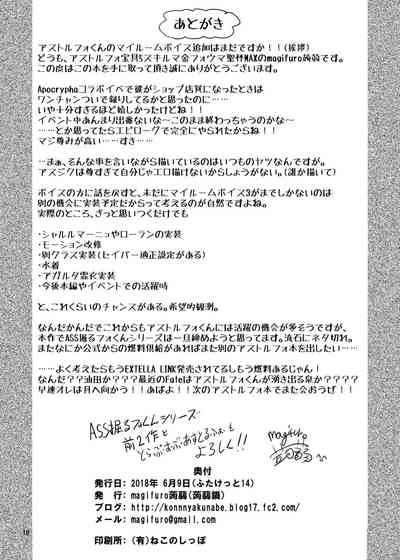 あとがき
アストルフォくんのマイルームボイス追加はまだですか!!(挨拶)
どうも、アストルフォ宝具5スキルマ金フォウマ聖杯MAXのmagifuro蒟蒻です。
この度はこの本を手に取って頂き誠にありがとうございます。
Apocryphaコラボイベで彼がショップ店員になったときは
ワンチャンついで掘りしてるかと思ったのに……
いや十分すぎるほどに嬉しかったんだけど!!
イベント中あんまり出番ないな～このまま終わっちゃうのかな～
……とか思ってたらエピローグで完全にやられたからね!!
マジ尊みが高い……すき……
…まぁ、そんな事を言いながら描いているのはいつものヤツなんですが。
アスジクは尊すぎて自分じゃエロ描けないからしょうがない。(誰か描いて)
ボイスの方に話を戻すと、未だにマイルームボイス3がまでしかないのは
別の機会に実装予定だからって考えるのが自然ですよね。
実際のところ、ざっと思いつくだけでも
・シャルルマーニュやローランの実装
・モーション改修
・別クラス実装(セイバー適正設定がある)
・水着
・アガルタ霊衣実装
・今後本編やイベントでの活躍時
と、これくらいのチャンスがある。希望的観測。
なんだかんだでこれからもアストルフォくんには活躍の機会が多そうですが、
本作でASS掘るフォくんシリーズは一旦締めようと思ってます。流石にネタ切れ。
またなにか公式からの燃料供給があればまた別のアストルフォ本を出したい……
……よく考えたらもうEXTELLA LINK発売されてるしもう燃料あるじゃん!
なんだ??油田か????最近のFateはアストルフォくんが湧き出る泉か????
早速オレは月へ向かう!!あばよ!!次のアストルフォ本でまた会おうぜ!!
ASS掘るフォくんシリーズ
前2作と
とらぶるまぶあすとるふぉも
よろしく!!
magifuro
蒟蒻
奥付
発行日:2018年 6月9日(ふたけっと14)
発 行:magifuro蒟蒻(蒟蒻鍋)
ブログ:http://konnnyakunabe.blog17.fc2.com/
メール:magifuro@gmail.com
印刷所:(有)ねこのしっぽ
18